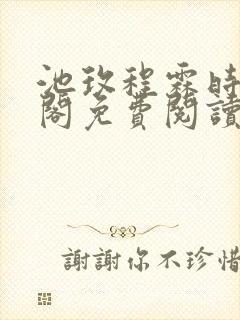 池玫程霖時
閣免費閱讀
謝謝你不珍惜